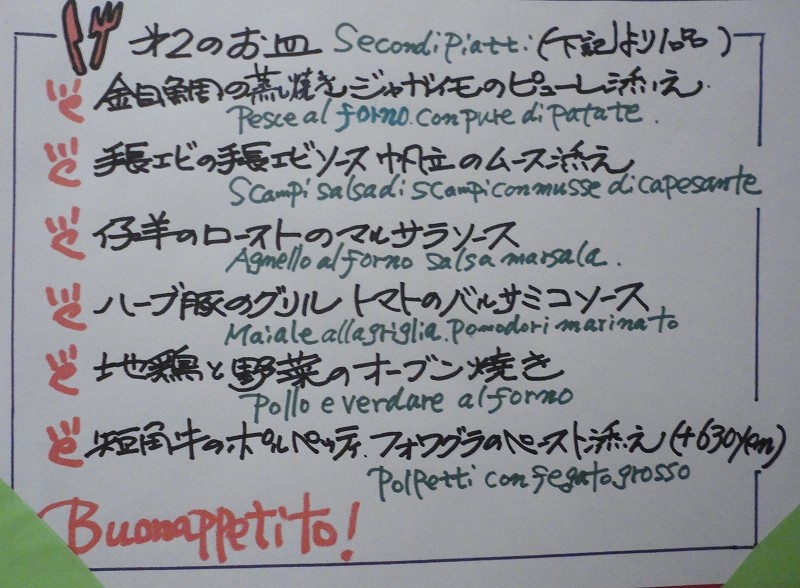 才2のお皿 Secondi Piatti (下記より1品)
金目鯛の蒸し焼き ジャガイモのピューレ添え
Pesce al forno. con pure di patate.
手長エビの手長エビソース 帆立のムース添え
Scampi salsa di scampi con musse di capesante
仔羊のローストのマルサラソース
Agnello al forno salsa marsala.
ハーブ豚のグリル トマトのバルサミコソース
Maiale alla griglia. Pomodori marinato
地鶏と野菜のオーブン焼き
Pollo e verdare al forno
短角牛のポルペッティ. フォワグラのペースト添え (+630yen)
Polpetti con fegato grosso
Buonappetito!